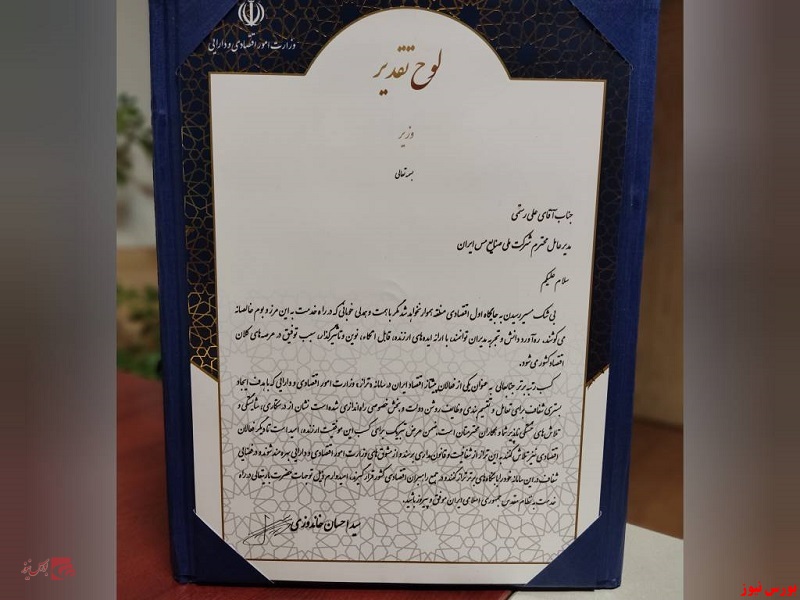 وزارت امور اقتصادی و دارایی
لوح تقدیر
وزیر
بسمه تعالی
جناب آقای علی رستمی
مدیر عامل محترم شرکت ملی صنایع مس ایران
سلام علیکم
بی شک مسیر رسیدن به جایگاه اول اقتصادی منطقه هموار نخواهد شد مگر با همت و همدلی خوبانی که در راه خدمت به این مرز و بوم خالصانه
می کوشند. ره آورد دانش و تجربه مدیران توانمند، با ارائه ایده های ارزنده، قابل اتکاء، نوین و تاثیرگذار، سبب توفیق در عرصه های کلان
اقتصاد کشور می شود.
کسب رتبه برتر جنابعالی به عنوان یکی از فعالان پیشتاز اقتصاد ایران در سامانه «تراز» وزارت امور اقتصادی و دارایی که با هدف ایجاد
بستری شفاف برای تعامل و تقسیم بندی وظایف روشن دولت و بخش خصوصی راه اندازی شده است نشان از درستکاری، شایستگی و
تلاش های خستگی ناپذیر شما و همکاران محترمتان است. ضمن عرض تبریک برای کسب این موفقیت ارزنده، امید است تا دیگر فعالان
اقتصادی نیز تلاش کنند به این تراز از شفافیت و قانون مداری برسند و از مشوق های وزارت امور اقتصادی و دارایی بهره مند شوند و در فضایی
شفاف در این سامانه خود را با بنگاه های برتر تراز کنند و در جمع راهبران اقتصادی کشور قرار گیرند. امیدوارم ذیل توجهات حضرت باریتعالی در راه
خدمت به نظام مقدس جمهوری اسلامی ایران موفق و پیروز باشید.
سید احسان خاندوزی
بورس نیوز